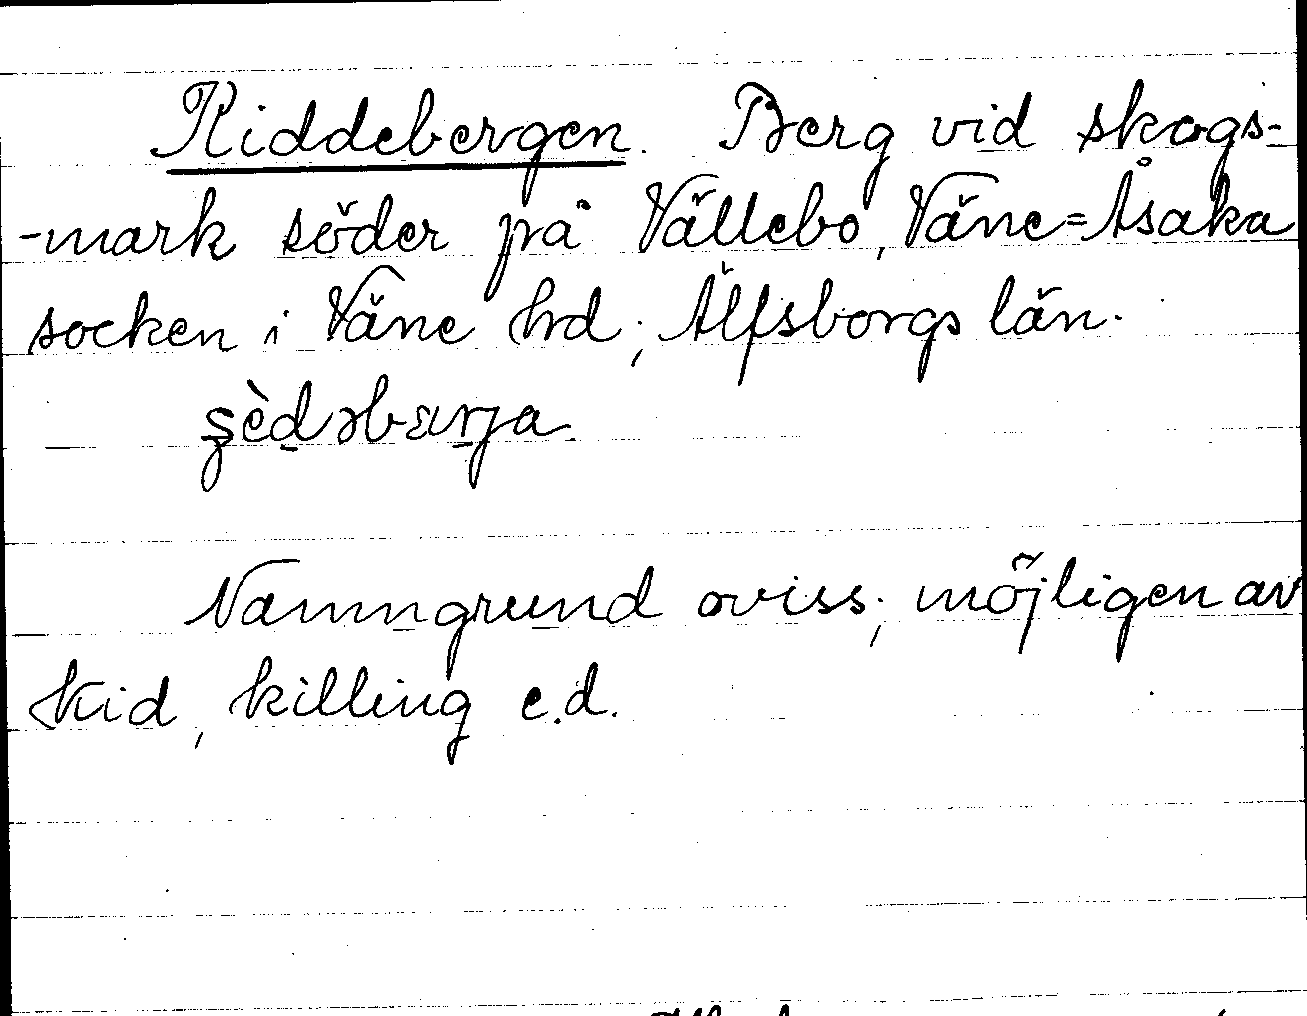 Kiddebergen. Berg vid skogs-
-mark söder på Vällebo, Väne=Åsaka
socken i Väne hd; Älfsborgs län.
Namngrund oviss; möjligen av
kid, killing e.d.